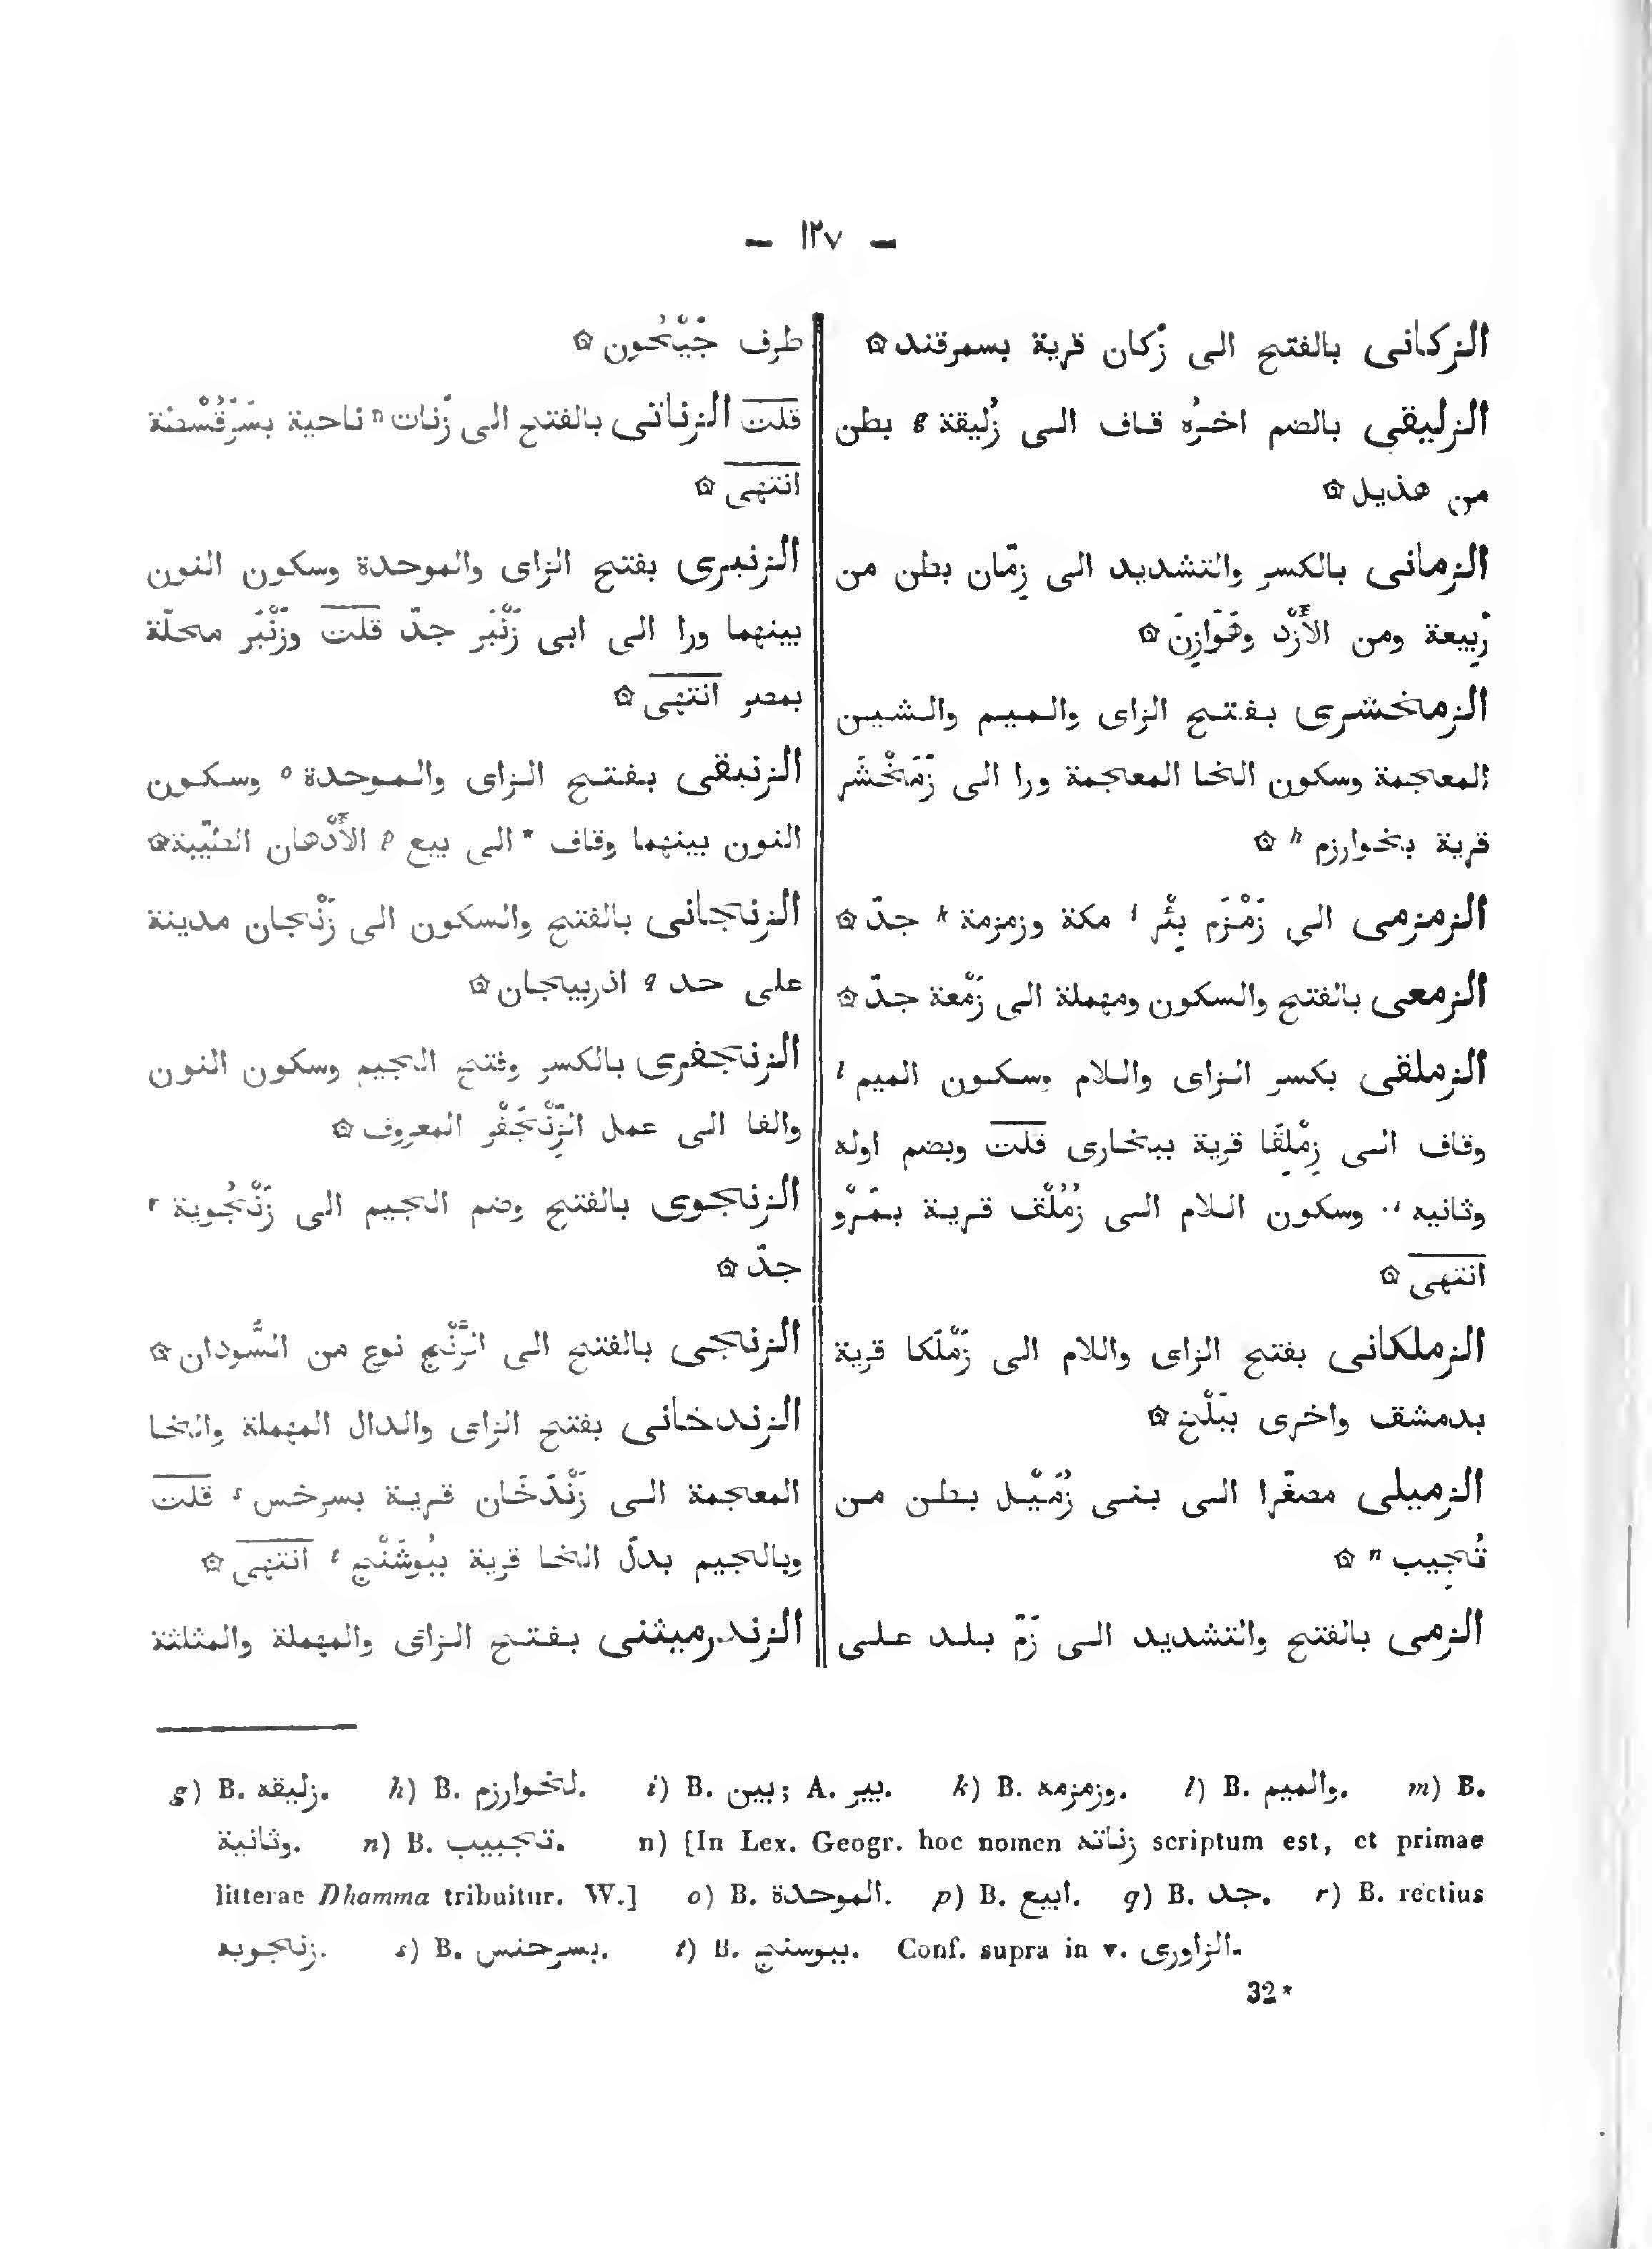 — ١٢٧ —
الزكانى بالفتح الى زَكان قرية بسمرقند ۞
الزليقى بالضم اخرُه قاف الى زُليقة g بطن
من هذيل ۞
الزمانى بالكسر والتشديد الى زِمّان بطن من
رَبِيعة ومن الأَزْد وهَوَازِن ۞
الزمخشرى بفتح الزاى والميم والشين
المعجمة وسكون الخا المعجمة ورا الى زَمَخْشَر
قرية بخوارزم h ۞
الزمزمى الى زَمْزَم بِئْر i مكة وزمزمة k جدّ ۞
الزمعى بالفتح والسكون ومهملة الى زَمْعة جدّ ۞
الزملقى بكسر الزاى واللام وسكون الميم l
وقاف الى زِمْلِقَا قرية ببخارى قلت وبضم اوله
وثانيه m وسكون اللام الى زُمُلْق قرية بمَرْو
انتهى ۞
الزملكانى بفتح الزاى واللام الى زَمْلَكا قرية
بدمشق واخرى ببَلْخ ۞
الزميلى مصغّرا الى بنى زُمَيْل بطن من
تُجِيب n ۞
الزمى بالفتح والتشديد الى زَمّ بلد على
طرف جَيْحُون ۞
قلت الزناتى بالفتح الى زَنات n ناحية بسَرَقُسْطة
انتهى ۞
الزنبرى بفتح الزاى والموحدة وسكون النون
بينهما ورا الى ابى زَنْبَر جدّ قلت وزَنْبَر محلّة
بمصر انتهى ۞
الزنبقى بفتح الزاى والموحدة o وسكون
النون بينهما وقاف * الى بيع p الأَدْهان الطيّبة ۞
الزنجانى بالفتح والسكون الى زَنْجان مدينة
على حد q اذربيجان ۞
الزنجفرى بالكسر وفتح الجيم وسكون النون
والفا الى عمل الزِّنْجَفْر المعروف ۞
الزنجوى بالفتح وضم الجيم الى زَنْجُوية r
جدّ ۞
الزنجى بالفتح الى الزَّنْج نوع من السُّودان ۞
الزندخانى بفتح الزاى والدال المهملة والخا
المعجمة الى زَنْدَخَان قرية بسرخس s قلت
وبالجيم بدل الخا قرية ببُوشَنْج t انتهى ۞
الزندرميثنى بفتح الزاى والمهملة والمثلثة
g) B. زليقه. h) B. لخوارزم. i) B. بين; A. بير. k) B. وزمزمه. l) B. والميم. m) B.
وثانية. n) B. تجبيب. n) [In Lex. Geogr. hoc nomen زناته scriptum est, et primae
litterae Dhamma tribuitur. W.] o) B. الموحدة. p) B. ابيع. q) B. جد. r) B. rectius
زنجويه. s) B. بسرحنس. t) B. ببوسنج. Conf. supra in v. الزاورى.
32*